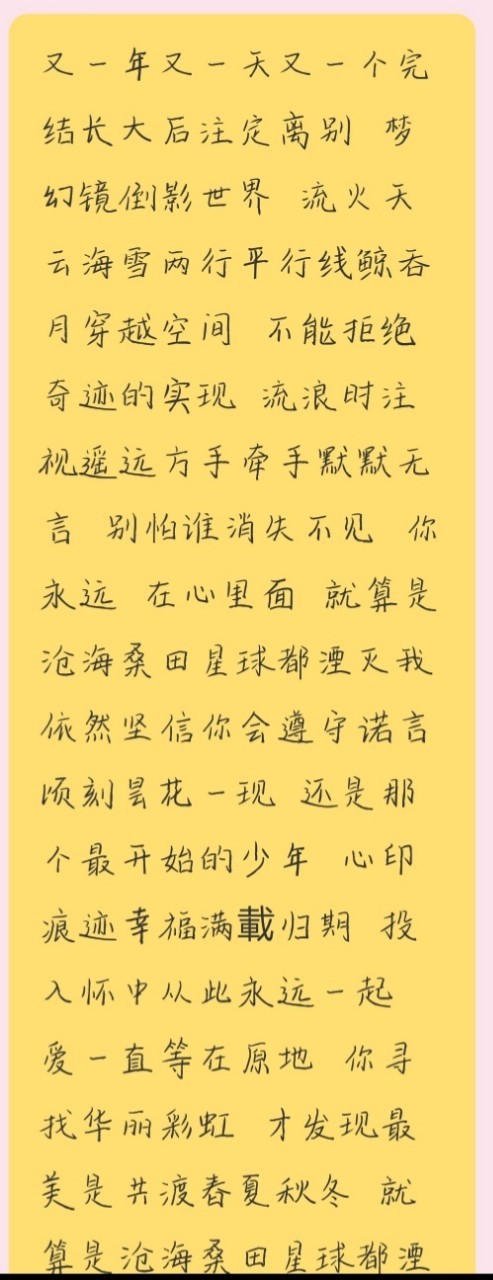 又一年又一天又一个完
结长大后注定离别 梦
幻镜倒影世界 流火天
云海雪两行平行线鲸吞
月穿越空间 不能拒绝
奇迹的实现 流浪时注
视遥远方手牵手默默无
言 别怕谁消失不见 你
永远 在心里面 就算是
沧海桑田星球都湮灭我
依然坚信你会遵守诺言
顷刻昙花一现 还是那
个最开始的少年 心印
痕迹幸福满載归期 投
入怀中从此永远一起
爱一直等在原地 你寻
找华丽彩虹 才发现最
美是共渡春夏秋冬 就
算是沧海桑田星球都湮